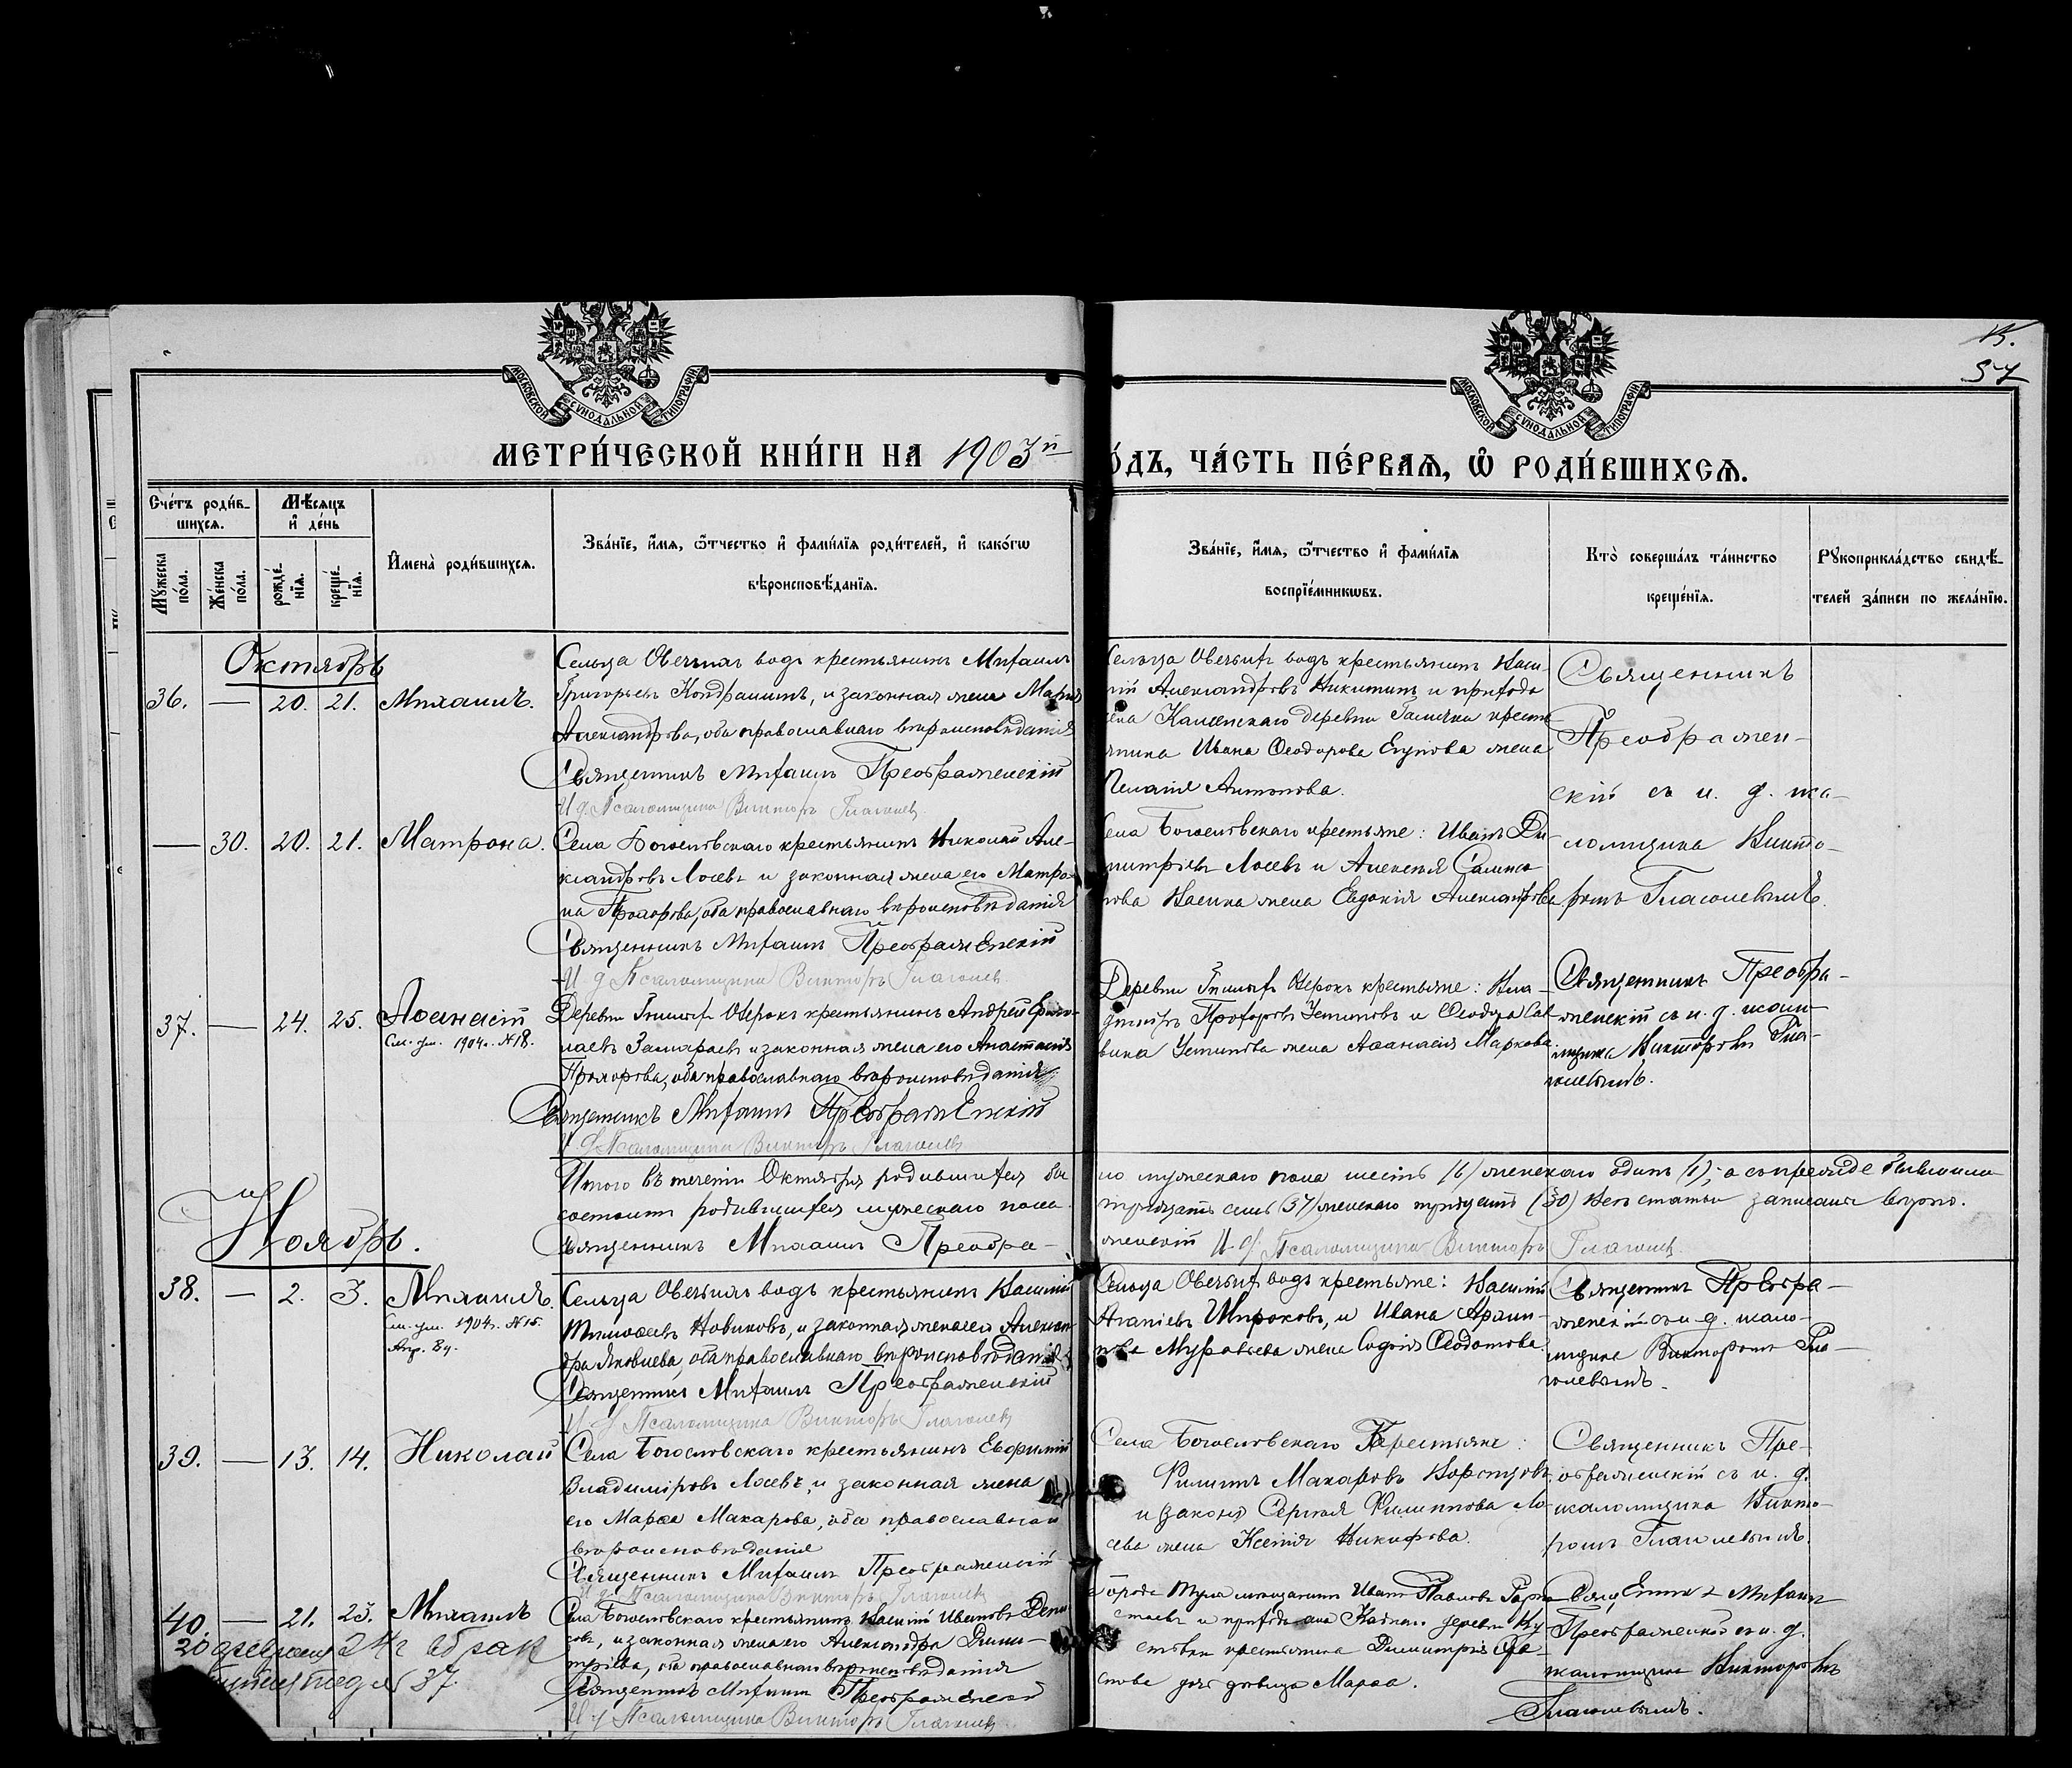 К.
57
МОСКОВСКОЙ СУНОДАЛЬНОЙ ТИПОГРАФІИ
МОСКОВСКОЙ СУНОДАЛЬНОЙ ТИПОГРАФІИ
МЕТРИ́ЧЕСКОЙ КНИ́ГИ НА 1903й
О́ДЪ, ЧА́СТЬ ПЕ́РВАѦ, Ѡ҆ РОДИ́ВШИХСѦ.
Сче́тъ роди́в-
шихсѧ.
Мѣ́сѧцъ
и҆ де́нь
Мꙋ́жеска по́ла.
Же́нска по́ла.
рожде́-нїѧ.
креще́-нїѧ.
И҆мена̀ роди́вшихсѧ.
Зва́нїе, и҆́мѧ, ѻ҆́тчество и҆ фами́лїѧ роди́телей, и҆ како́гѡ
вѣроисповѣ́данїѧ.
Зва́нїе, и҆́мѧ, ѻ҆́тчество и҆ фами́лїѧ
воспрїе́мникѡвъ.
Кто̀ соверша́лъ та́инство
креще́нїѧ.
Рꙋкоприкла́дство свидѣ́-
телей за́писи по жела́нїю.
Октябрь
36. — 20. 21. Михаилъ.
Сельца Овечьихъ водъ крестьянинъ Михаилъ
Григорьевъ Кондрашинъ, и законная жена Марія
Александрова, оба православнаго вѣроисповѣданія
Священникъ Михаилъ Преображенскій
И д Псаломщика Викторъ Глаголевъ
Сельца Овечьихъ водъ крестьянинъ Васи-
лій Александровъ Никитинъ и прихода
села Каменскаго деревни крестья-
нина Ивана Ѳеодорова жена
Пелагія Антонова.
Священникъ
Преображен-
скій съ и. д. пса-
ломщика Викто-
ромъ Глаголевымъ.
— 30. 20. 21. Матрона.
Села Богословскаго крестьянинъ Николай Але-
ксандровъ Лосевъ и законная жена его Матро-
на Прохорова, оба православнаго вѣроисповѣданія
Священникъ Михаилъ Преображенскій
И д Псаломщика Викторъ Глаголевъ
Села Богословскаго крестьяне: Иванъ Ди-
митріевъ Лосевъ и Алексѣя
жена Евдокія Александрова
37. — 24. 25. Аѳанасій
См. ум. 1904 г. №18.
Деревни Гнилыхъ Озерокъ крестьянинъ Андрей
и законная жена его Анастасія
Прохорова, оба православнаго вѣроисповѣданія
Священникъ Михаилъ Преображенскій
И д Псаломщика Викторъ Глаголевъ
Деревни Гнилыхъ Озерокъ крестьяне: Вла-
диміръ Прохоровъ Устиновъ и Ѳеодора Сав-
вина Устинова жена Аѳанасія Маркова.
Священникъ Преобра-
женскій съ и. д. псало-
мщика Викторомъ Гла-
голевымъ.
Итого въ теченіи Октября родившихся бы-
ло мужескаго пола шесть (6) женскаго одинъ (1), а съ прежде бывшими
состоитъ родившихся мужескаго пола
тридцать семь (37) женскаго тридцать (30) Всѣ статьи записаны вѣрно.
Священникъ Михаилъ Преобра-
женскій И. д. Псаломщика Викторъ Глаголевъ.
Ноябрь.
38. — 2. 3. Михаилъ.
См. ум. 1904 г. №15.
Сельца Овечьихъ водъ крестьянинъ Василій
Тимоѳеевъ Новиковъ, и законная жена его Алексан-
дра Яковлева, оба православнаго вѣроисповѣданія
Священникъ Михаилъ Преображенскій
И д Псаломщика Викторъ Глаголевъ
Сельца Овечьихъ водъ крестьяне: Василій
Ананіевъ Широковъ, и Ивана
Муравьева жена Софія Ѳеодотова.
Священникъ Преобра-
женскій съ и. д. псало-
мщика Викторомъ Гла-
голевымъ.
39. — 13. 14. Николай
Села Богословскаго крестьянинъ Евфимій
Владиміровъ Лосевъ, и законная жена
его Марѳа Макарова, оба православнаго
вѣроисповѣданія
Священникъ Михаилъ Преображенскій
И д Псаломщика Викторъ Глаголевъ
Села Богословскаго Крестьяне:
Филиппъ Макаровъ
и Сергѣя Филиппова Ло-
сева жена Ксенія Никифорова.
Священникъ Пре-
ображенскій съ и. д.
псаломщика Викто-
ромъ Глаголевымъ.
40. — 21. 23. Михаилъ
Села Богословскаго крестьянинъ Василій Ивановъ
и законная жена его Александра Дими-
тріева, оба православнаго вѣроисповѣданія
Священникъ Михаилъ Преображенскій
И д Псаломщика Викторъ Глаголевъ
Города Тулы мѣщанинъ Иванъ Павловъ
и прихода села деревни
крестьянина Димитрія
дочь дѣвица Марѳа.
Священникъ Михаилъ
Преображенскій съ и. д.
псаломщика Викторомъ
Глаголевымъ.
20 февраля 24 г брак
37